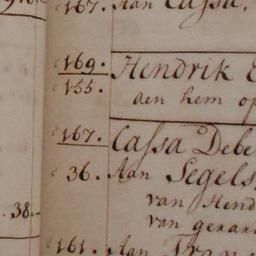 167. Aan Cassa.
169. Hendrik
155.
aen hem op
167. Cassa Debe
36. Aan Segels
van Hend
38
van gerar
161. Aan Fran